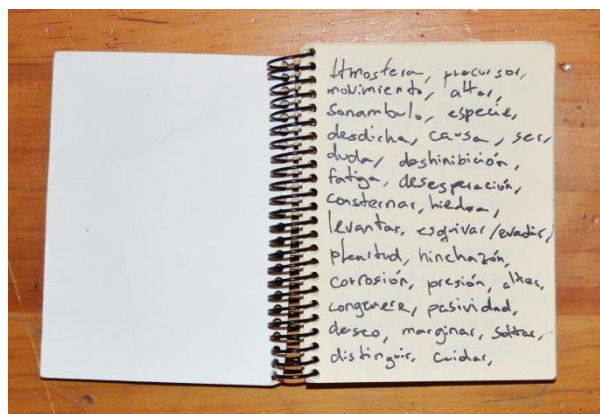 Atmosfera, precursor,
movimiento, alter,
Sonambulo, especie,
desdicha, causa, ser,
duda, deshinibición,
fatiga, desesperación,
consternar, hiedra,
levantar, esquivar/evadir/
plenitud, hinchazón,
corrosión, presión, alter,
congenere, pasividad,
deseo, marginar, soltar,
distinguir, cuidar,